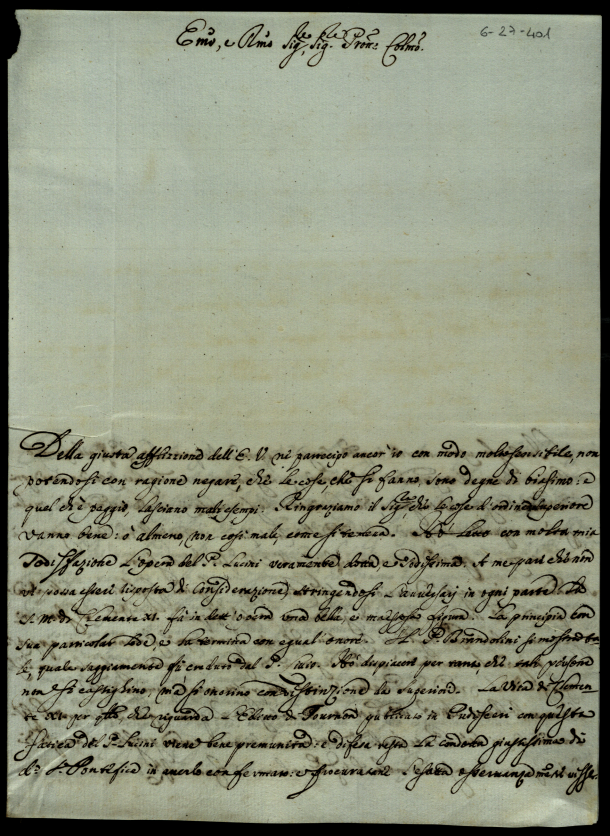 Emo, e Rmo Sigre, Sig. Pron: Colmo.
6-27-401
Della giusta afflizzione dell'E. V. nè partecipo ancor io con modo molto sensibile, non
potendosi con ragione negare, che le cose, che si fanno, sono degne di biasimo: e
quel ch'è peggio, lasciano mali esempi. Ringraziamo il Sigre, che le cose d'ordine superiore
vanno bene: ò almeno, non così male, come si temeva. Hò letto con molta mia
sodisfazione l'opera del P. Lucini veramente dotta e sodissima. A me pare che non
vi possa essere risposta di Considerazione, stringendosi in ogni parte. La
S. M. di Clemente XI. fà in dett'opera una bella, e maestosa figura. La principia con
sua particolar lode, e la termina con egual onore. Il P. Brandolini si mostra
quale saggiamente del P. Hò dispiacere per tanto, che tali persone
non si castighino, mà si onorino con distinzione da Superiori. La Vita di Clemen-
te XI. per qllo, che riguarda l'Editto di Tournon publicato in Pudisceri con questa
fatica del P. Lucini viene bene premunita: e difesa resta la condotta giustissima di
do. S. Pontefice in averlo confermato: e procuratane l'esatta osservanza